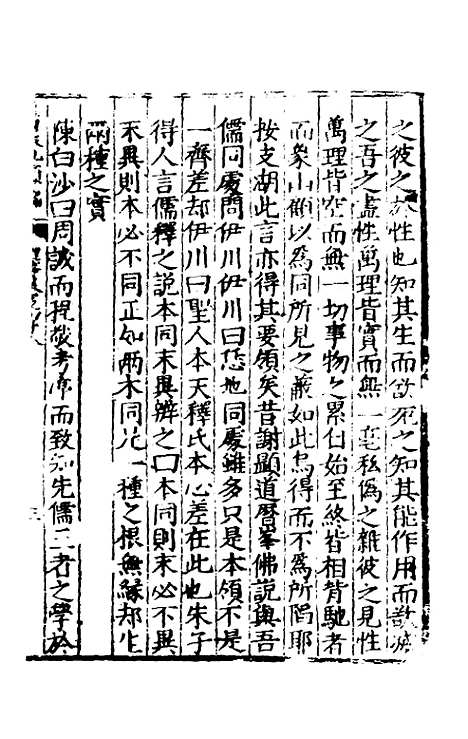 之彼之於性也知其生而欲死之知其能作用而欲滅
之吾之盡性萬理皆實而無一毫私偽之雜彼之見性
萬理皆空而無一切事物之累自始至終皆相背馳者
而象山顧以為同所見之蔽如此烏得而不為所陷耶
按支湖此言亦得其要領矣昔謝顯道歷舉佛說與吾
儒同處問伊川伊川曰恁地同處雖多只是本領不是
一齊差却伊川曰聖人本天釋氏本心差在此也朱子
得人言儒釋之說本同末異辨之曰本同則末必不異
末異則本必不同正如兩木同是一種之根無緣却生
兩種之實
陳白沙曰周誠而程敬考亭而致知先儒二者之學於